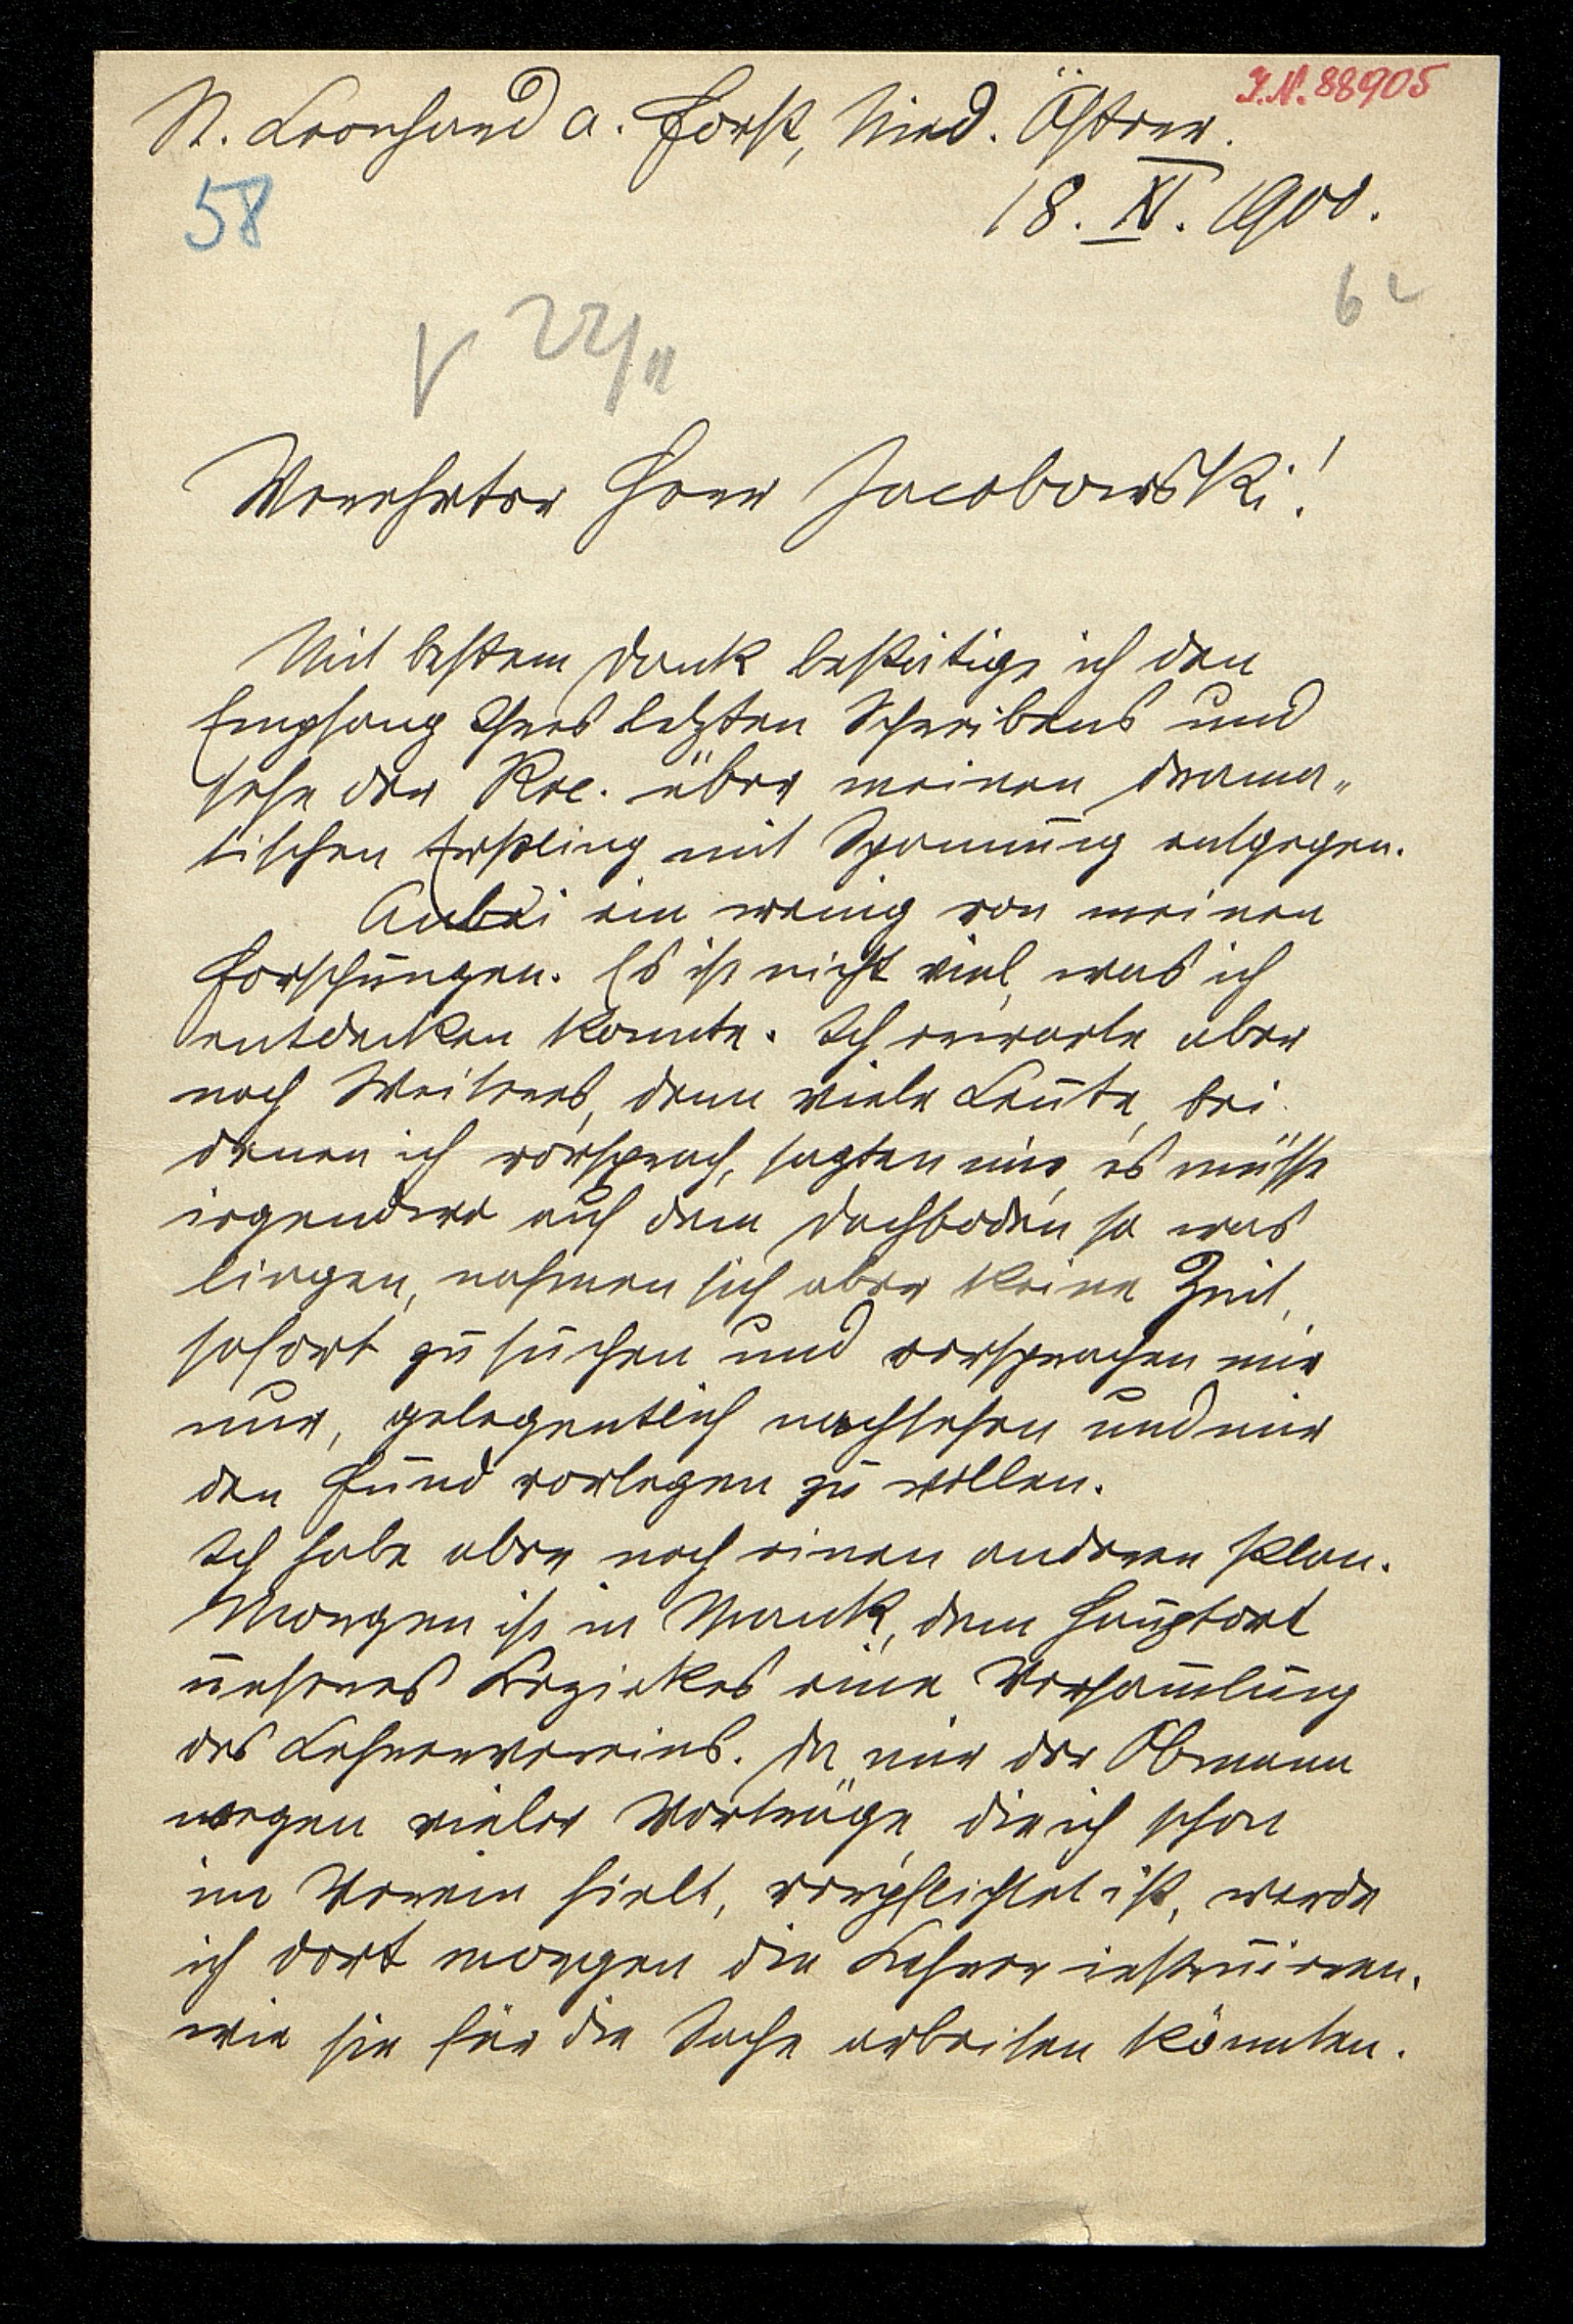 J.N. 88905
St. Leonhard a. Forst, Nied. Östrer.
58
18. XI. 1900.
V 22/11
Verehrter Herr Jacobowski!
Mit bestem Dank bestätige ich den
Empfang Ihres letzten Schreibens und
sehe der Rec. über meinen drama-
tischen Erstling mit Spannung entgegen.
Anbei ein wenig von meinen
Forschungen. Es ist nicht viel, was ich
entdecken konnte. Ich erwarte aber
noch Weiteres, denn viele Leute, bei
denen ich vorsprach, sagten mir, es müsse
irgendwo auf dem Dachboden so was
liegen, nahmen sich aber keine Zeit,
sofort zu suchen und versprachen mir
nur, gelegentlich nachsehen und mir
den Fund vorlegen zu wollen.
Ich habe aber noch einen anderen Plan.
Morgen ist in Mank, dem Hauptort
unseres Bezirkes eine Versammlung
des Lehrervereins. Da mir der Obmann
wegen vieler Vorträge, die ich schon
im Verein hielt, verpflichtet ist, werde
ich dort morgen die Lehrer instruieren,
wie sie für die Sache arbeiten könnten.